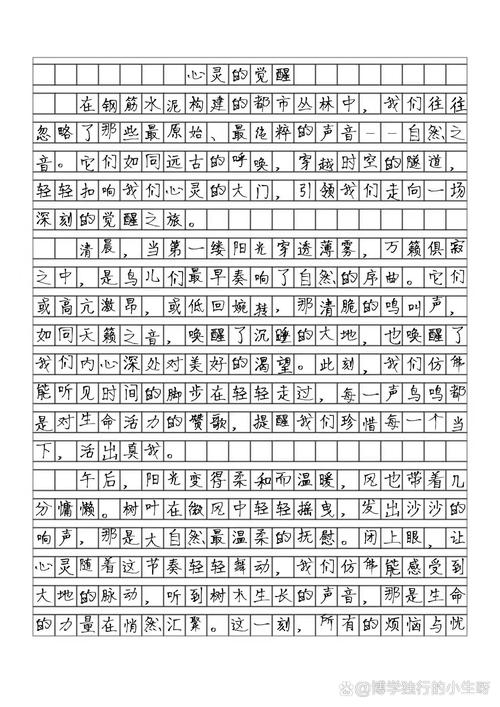 心灵的觉醒
在钢筋水泥构建的都市丛林中，我们往往
忽略了那些最原始、最纯粹的声音——自然之
音。它们如同远古的呼唤，穿越时空的隧道，
轻轻扣响我们心灵的大门，引领我们走向一场
深刻的觉醒之旅。
清晨，当第一缕阳光穿透薄雾，万籁俱寂
之中，是鸟儿们最早奏响了自然的序曲。它们
或高亢激昂，或低回婉转，那清脆的鸣叫声，
如同天籁之音，唤醒了沉睡的大地，也唤醒了
我们内心深处对美好的渴望。此刻，我们仿佛
能听见时间的脚步在轻轻走过，每一声鸟鸣都
是对生命活力的赞歌，提醒我们珍惜每一个当
下，活出真我。
午后，阳光变得柔和而温暖，风也带着几
分慵懒。树叶在微风中轻轻摇曳，发出沙沙的
响声，那是大自然最温柔的抚慰。闭上眼，让
心灵随着这节奏轻轻舞动，我们仿佛能感受到
大地的脉动，听到树木生长的声音，那是生命
的力量在悄然汇聚。这一刻，所有的烦恼与忧
@博学独行的小生呀